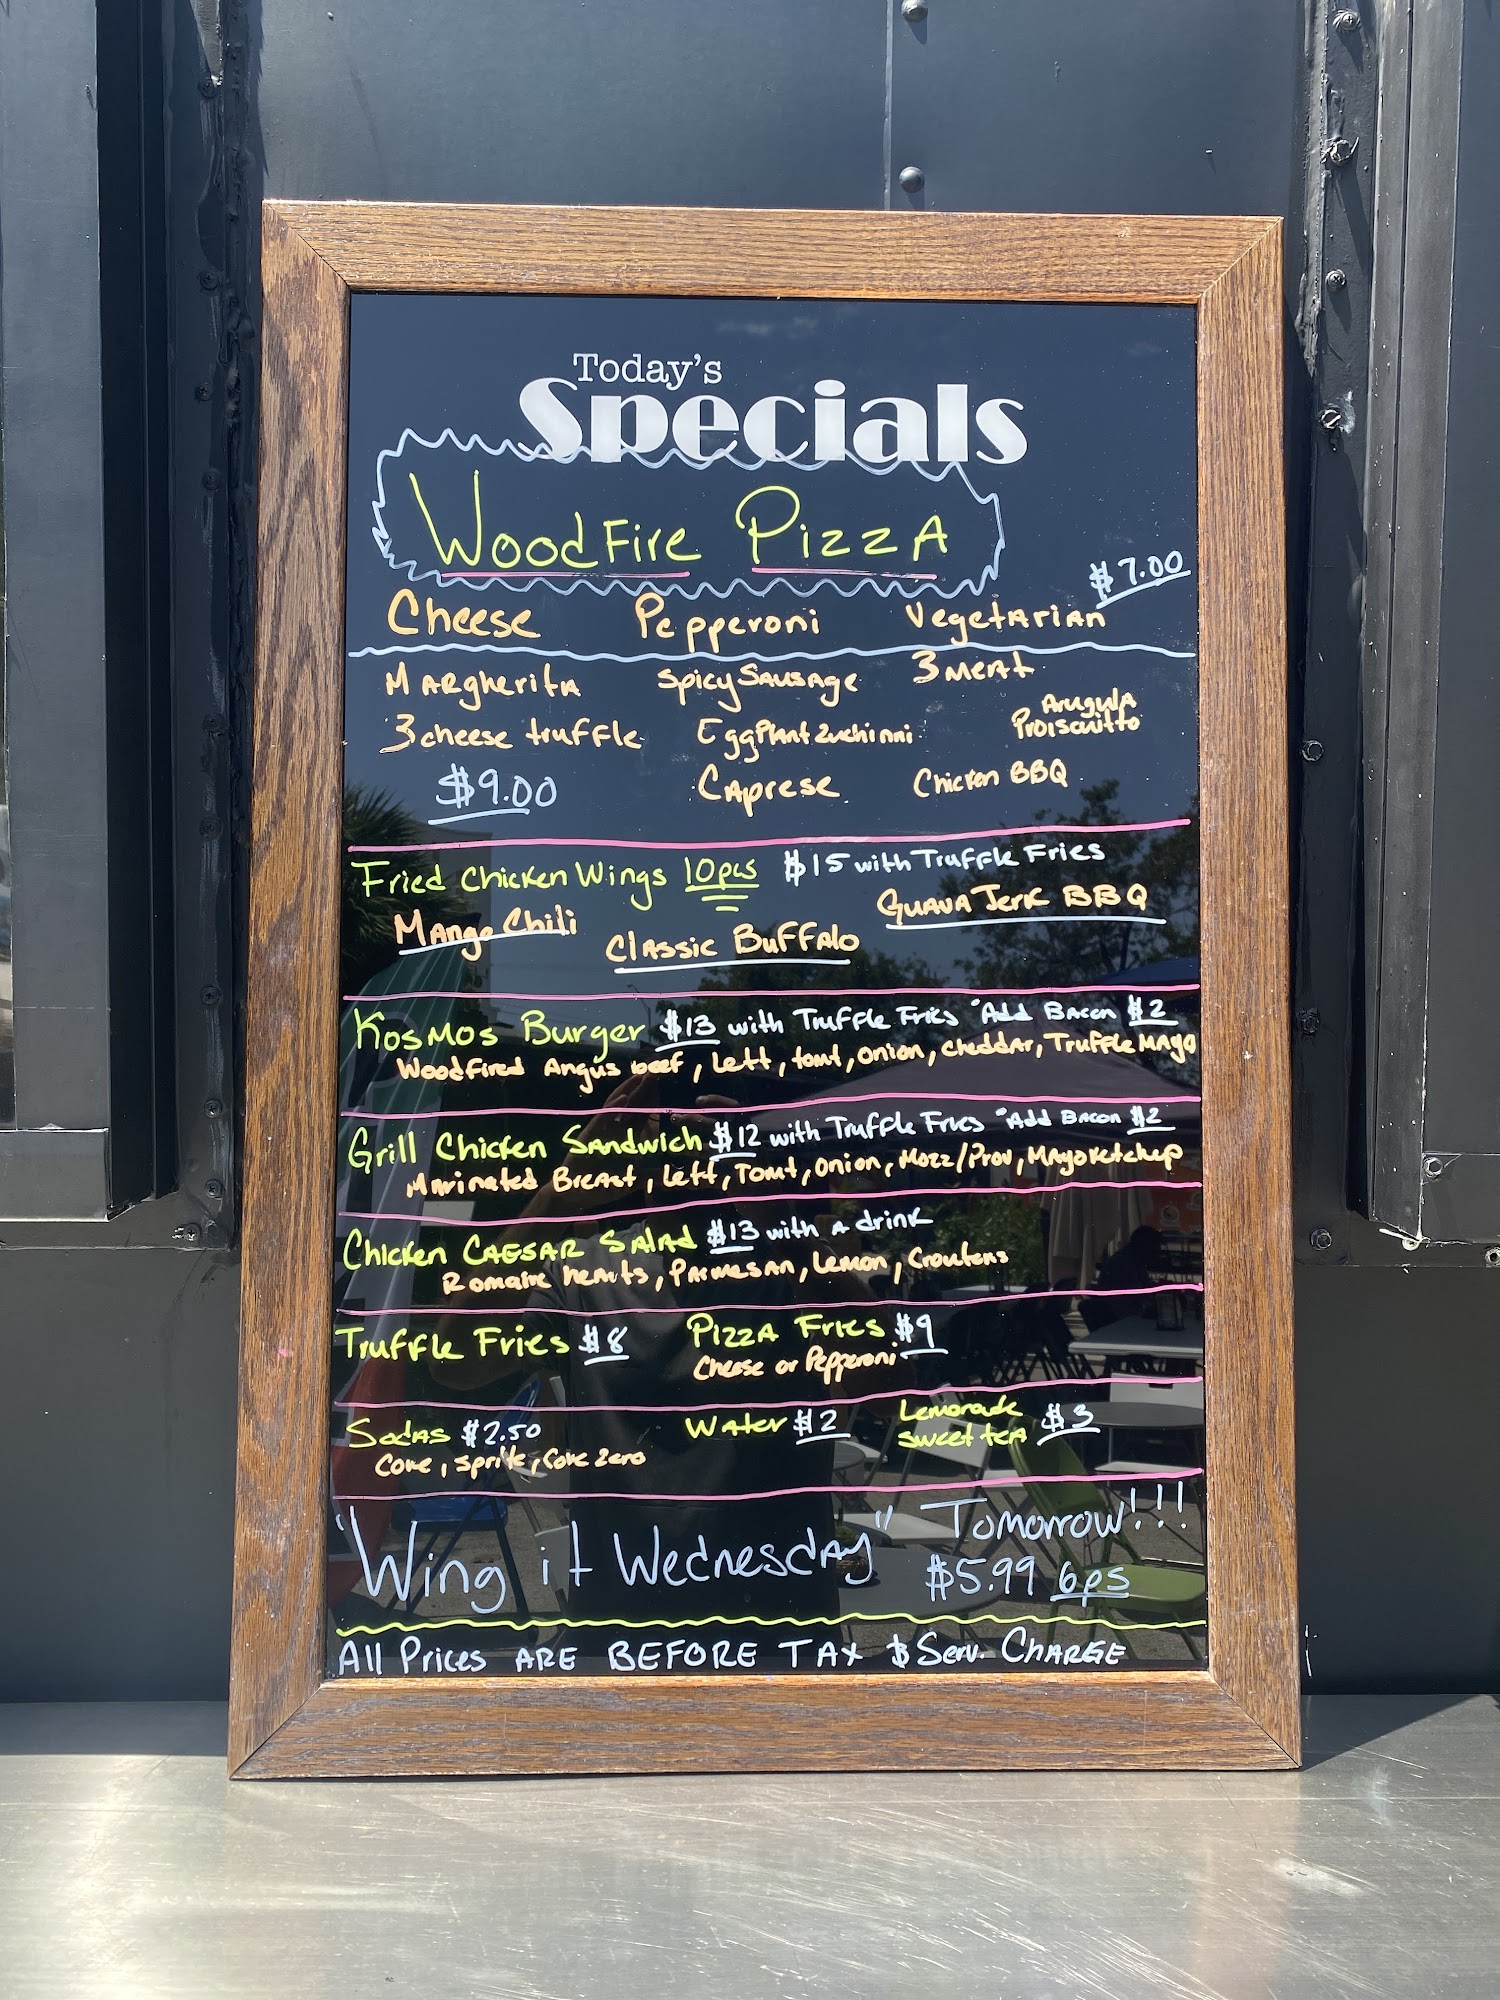 Today's
Specials
WoodFire Pizza
$7.00
Cheese Pepperoni Vegetarian
Margherita Spicy Sausage 3 meat
3 cheese truffle Eggplant Zuchinni Arugula Proiscuitto
$9.00 Caprese Chicken BBQ
Fried Chicken Wings 10pcs $15 with Truffle Fries
Mango Chili Classic Buffalo Guava Jerk BBQ
Kosmos Burger $13 with Truffle Fries *Add Bacon $2
Woodfired Angus beef, Lett, tomt, onion, cheddar, Truffle Mayo
Grill Chicken Sandwich $12 with Truffle Fries *Add Bacon $2
Marinated Breast, Lett, Tomt, onion, Mozz/Prov, Mayoketchup
Chicken Caesar Salad $13 with a drink
Romaine hearts, Parmesan, Lemon, Croutons
Truffle Fries $8 Pizza Fries $9
Cheese or Pepperoni
Sodas $2.50 Water $2 Lemonade sweet tea $3
Coke, Sprite, Coke Zero
"Wing it Wednesday" Tomorrow!!!
$5.99 6ps
All Prices are BEFORE TAX $ Serv. Charge